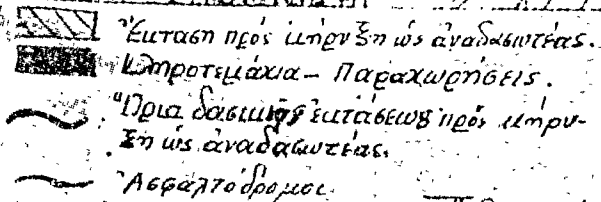 Ἔκταση πρός κήρυξη ὡς ἀναδασωτέας.
Κληροτεμάχια - Παραχωρήσεις.
Ὅρια δασικῆς ἐκτάσεως πρός κήρυ-
ξη ὡς ἀναδασωτέας.
Ἀσφαλτόδρομοι